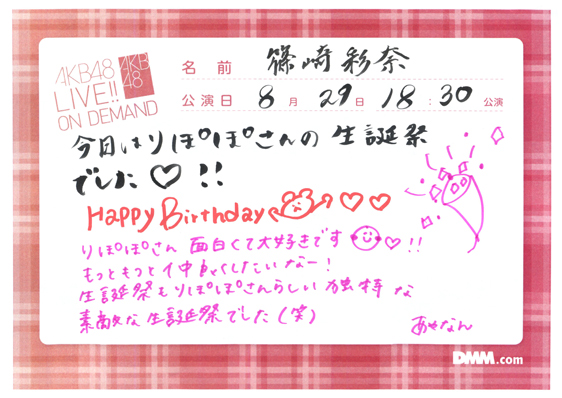 AKB48
LIVE!!
ON DEMAND
AKB
48
名前 篠崎彩奈
公演日 8月29日 18:30公演
今日はりぽぽさんの生誕祭
でした♡!!
Happy Birthday ♡♡
りぽぽさん 面白くて大好きです♡!!
もっともっと仲良くしたいなー!
生誕祭もりぽぽさんらしい独特な
素敵な生誕祭でした(笑)
あやなん
DMM.com